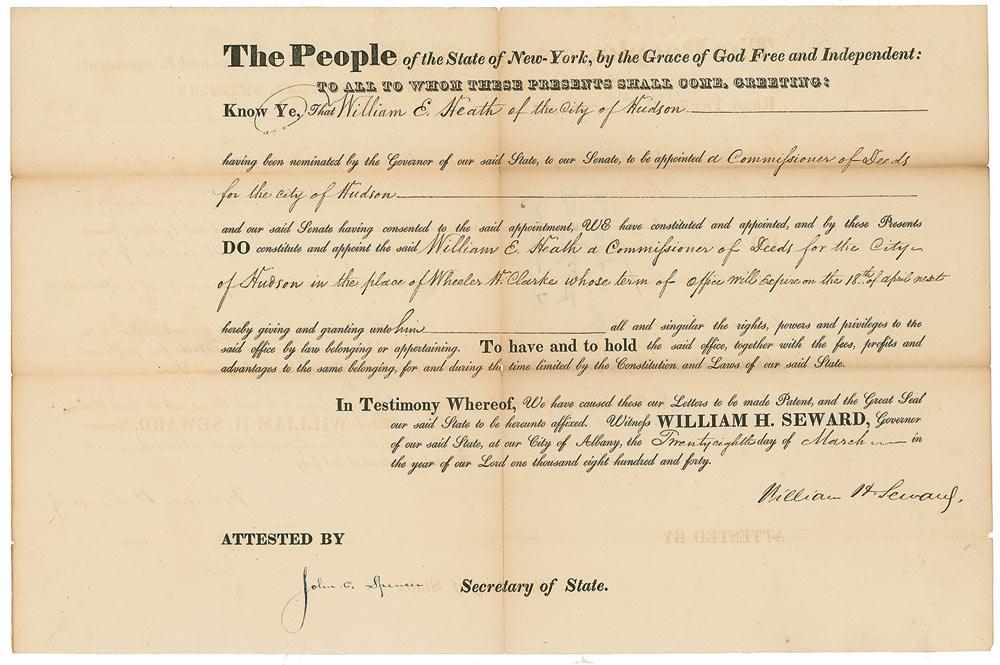 The People of the State of New-York, by the Grace of God Free and Independent:
TO ALL TO WHOM THESE PRESENTS SHALL COME, GREETING:
Know Ye, That William E. Heath of the City of Hudson
having been nominated by the Governor of our said State, to our Senate, to be appointed a Commissioner of Deeds
for the city of Hudson
and our said Senate having consented to the said appointment, WE have constituted and appointed, and by these Presents
DO constitute and appoint the said William E. Heath a Commissioner of Deeds for the City
of Hudson in the place of Wheeler H. Clarke whose term of office will expire on the 18th of april next
hereby giving and granting unto him all and singular the rights, powers and privileges to the
said office by law belonging or appertaining. To have and to hold the said office, together with the fees, profits and
advantages to the same belonging, for and during the time limited by the Constitution and Laws of our said State.
In Testimony Whereof, We have caused these our Letters to be made Patent, and the Great Seal
of our said State to be hereunto affixed. Witness WILLIAM H. SEWARD, Governor
of our said State, at our City of Albany, the Twentyeighth day of March in
the year of our Lord one thousand eight hundred and forty.
William H Seward.
ATTESTED BY
John C. Spencer Secretary of State.